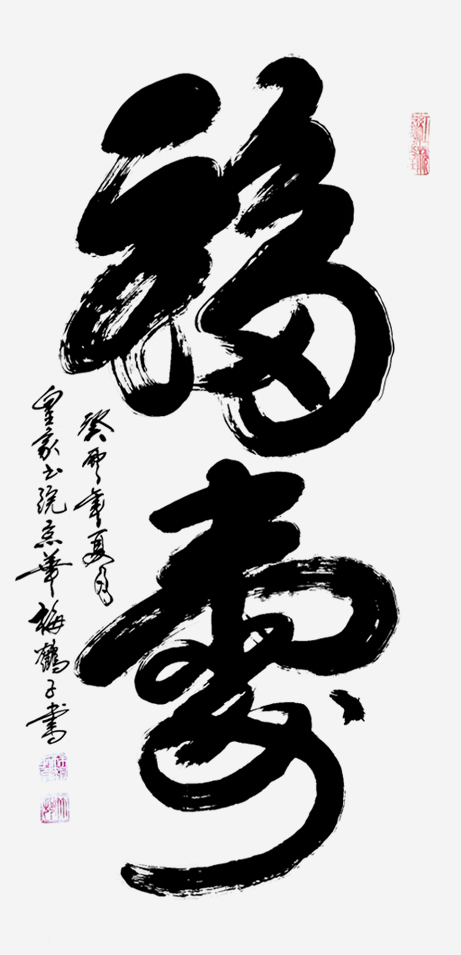 福壽
癸酉年夏月
皇家书院京華梅鶴子書